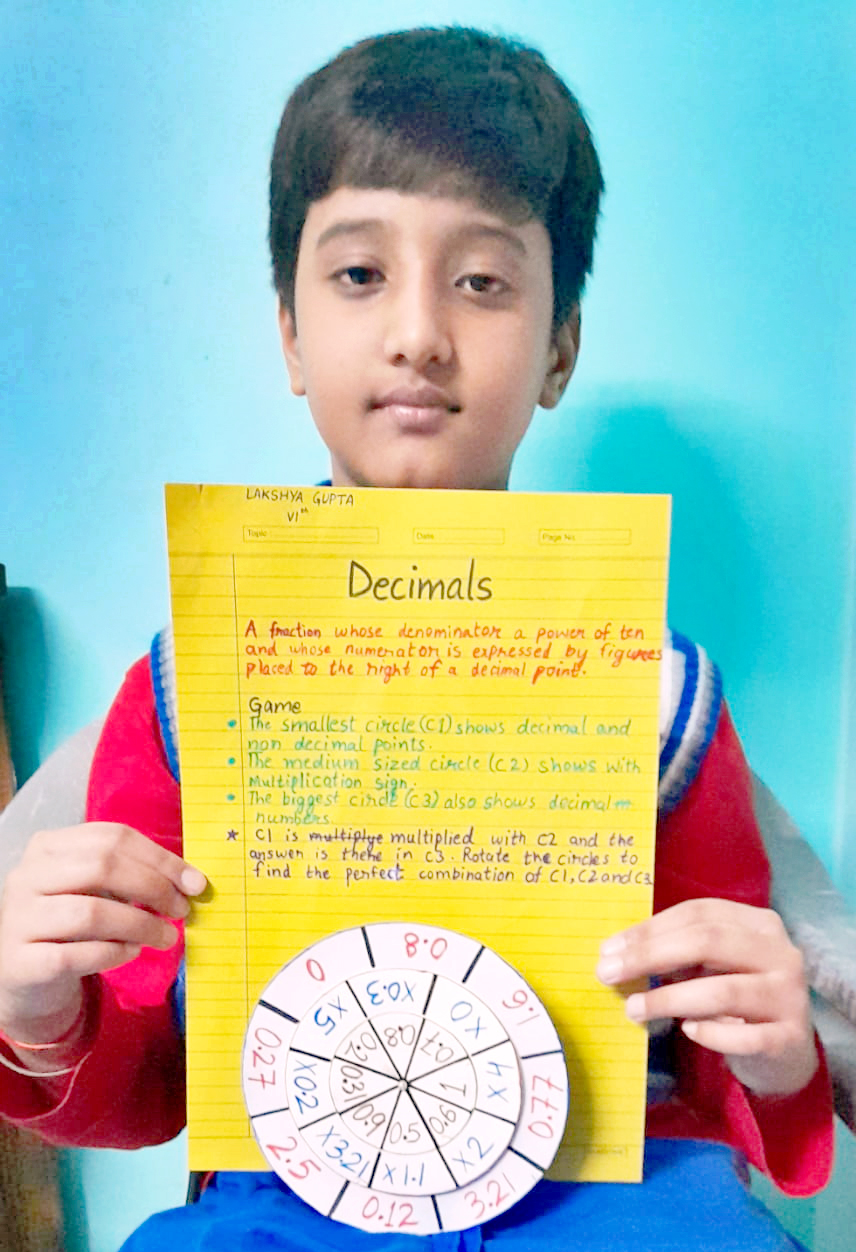 LAKSHYA GUPTA
VIth
Topic
Date
Page No.
Decimals
A fraction whose denominator a power of ten
and whose numerator is expressed by figures
placed to the right of a decimal point.
Game
• The smallest circle (C1) shows decimal and
non decimal points.
• The medium sized circle (C2) shows with
Multiplication sign.
• The biggest circle (C3) also shows decimal
numbers.
* C1 is multiplye multiplied with C2 and the
answer is there in C3. Rotate the circles to
find the perfect combination of C1, C2 and C3
0.8
1.6
0.77
3.21
0.12
2.5
0.27
0
X0.3
X0
X4
X2
X1.1
X3.21
X0.2
X5
0.8
0.7
1
0.6
0.5
0.9
0.31
0.2